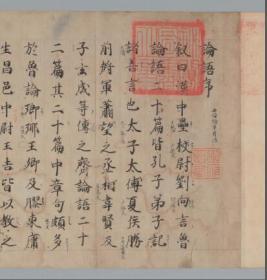 論語序
叙曰漢中壘校尉劉向言魯
論語二十篇皆孔子弟子記
諸善言也太子太傅夏侯勝
前將軍蕭望之丞相韋賢及
子玄成等傳之齊論語二十
二篇其二十篇中章句頗多
於魯論瑯琊王卿及膠東庸
生昌邑中尉王吉皆以教之